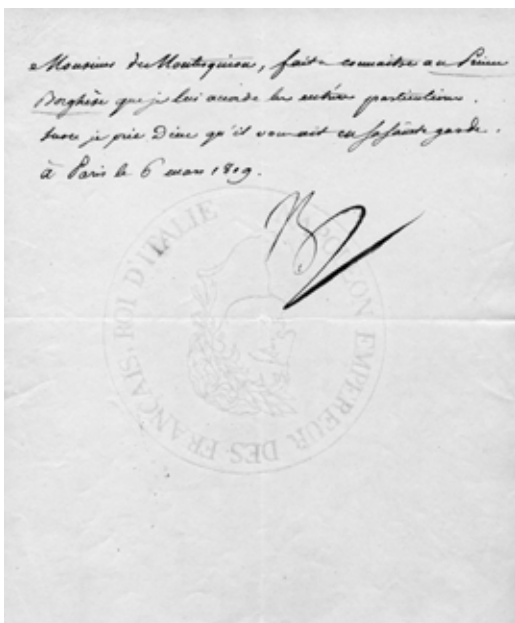 Monsieur de Montesquiou, faites connaitre au Prince
Borghèse que je lui accorde les entrées particulières.
Surce je prie Dieu qu'il vous ait en sa sainte garde.
à Paris le 6 mars 1809.
NAPOLEON EMPEREUR DES FRANÇAIS, ROI D'ITALIE